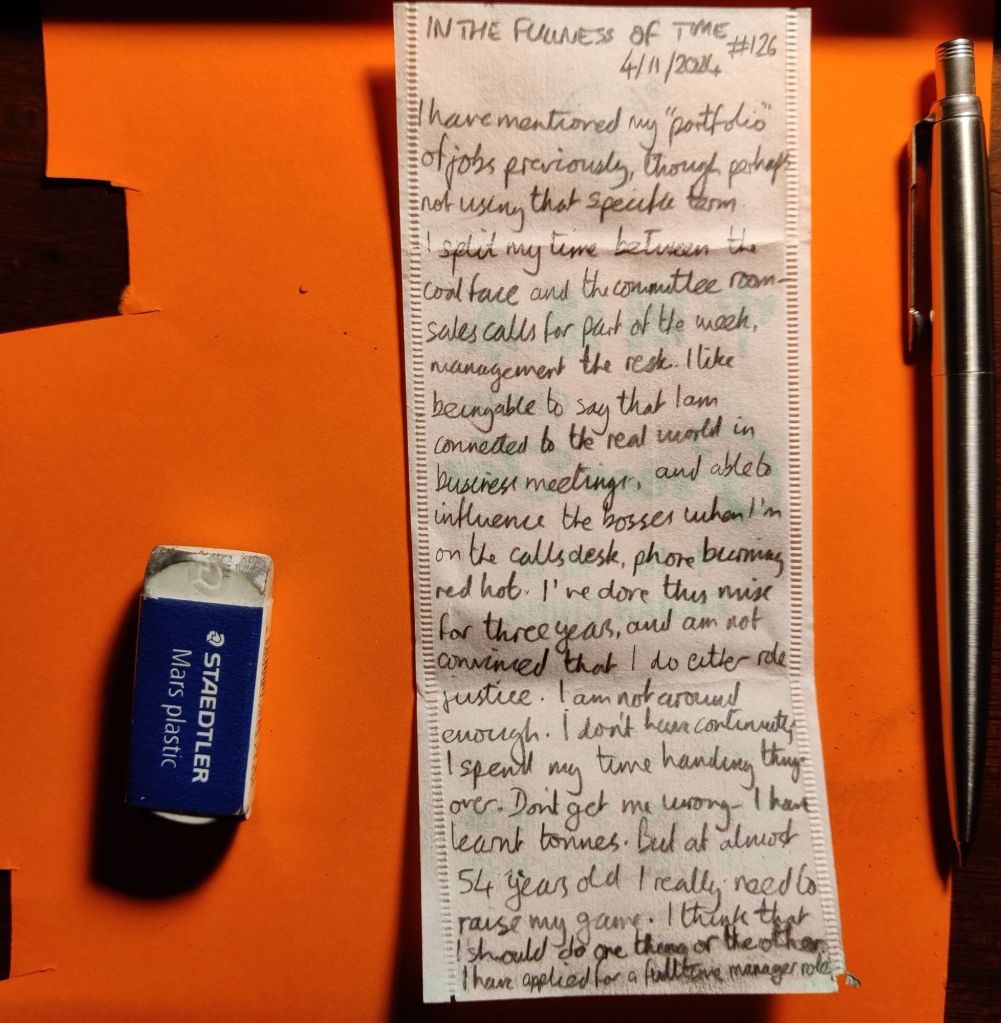 IN THE FULLNESS OF TIME #126
4/11/2024
I have mentioned my "portfolio"
of jobs previously, though perhaps
not using that specific term.
I split my time between the
coal face and the committee room -
sales calls for part of the week,
management the rest. I like
being able to say that I am
connected to the real world in
business meetings, and able to
influence the bosses when I'm
on the calls desk, phone burning
red hot. I've done this mix
for three years, and am not
convinced that I do either role
justice. I am not around
enough. I don't have continuity
I spend my time handing things
over. Don't get me wrong - I have
learnt tonnes. But at almost
54 years old I really need to
raise my game. I think that
I should do one thing or the other.
I have applied for a fulltime manager role
STAEDTLER
Mars plastic